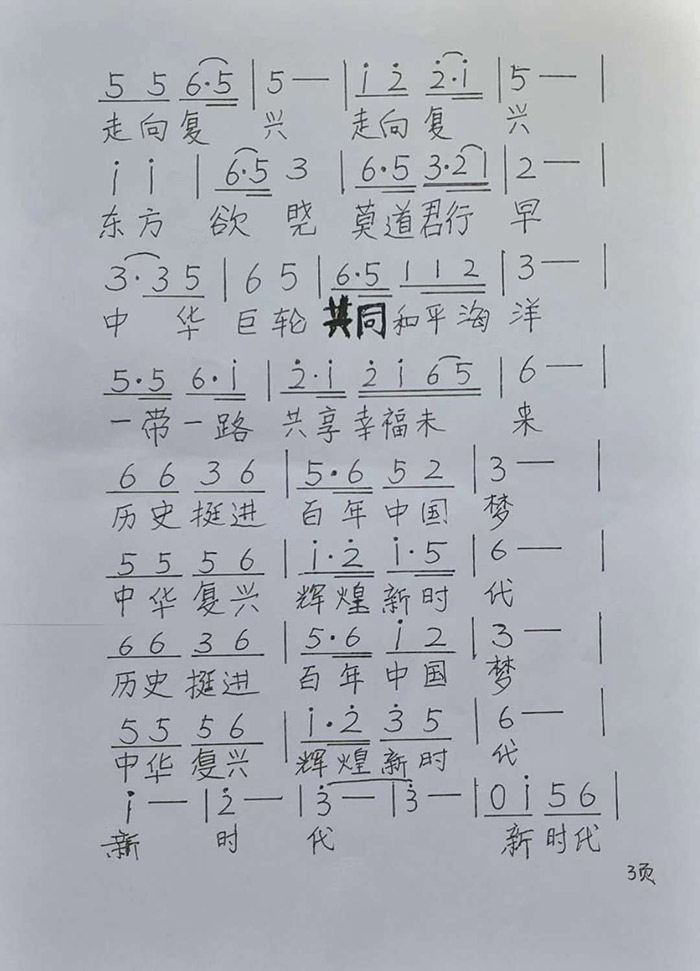 5 5 6·5 | 5 — | i̇ 2̇ 2̇·i̇ | 5 — |
走向复 兴 走向复 兴
i̇ i̇ | 6·5 3 | 6·5 3·2 1 | 2 — |
东方 欲 晓 莫道君行 早
3·3 5 | 6 5 | 6·5 1 1 2 | 3 — |
中 华 巨轮 共同和平海 洋
5·5 6·i̇ | 2̇·i̇ 2̇ i̇ 6 5 | 6 — |
一带一路 共享幸福未 来
6 6 3 6 | 5·6 5 2 | 3 — |
历史挺进 百年中国 梦
5 5 5 6 | i̇·2̇ i̇·5 | 6 — |
中华复兴 辉煌新时 代
6 6 3 6 | 5·6 i̇ 2 | 3 — |
历史挺进 百年中国 梦
5 5 5 6 | i̇·2̇ 3̇ 5 | 6 — |
中华复兴 辉煌新时 代
i̇ — | 2̇ — | 3̇ — | 3̇ — | 0 i̇ 5 6 |
新 时 代 新时代
3页